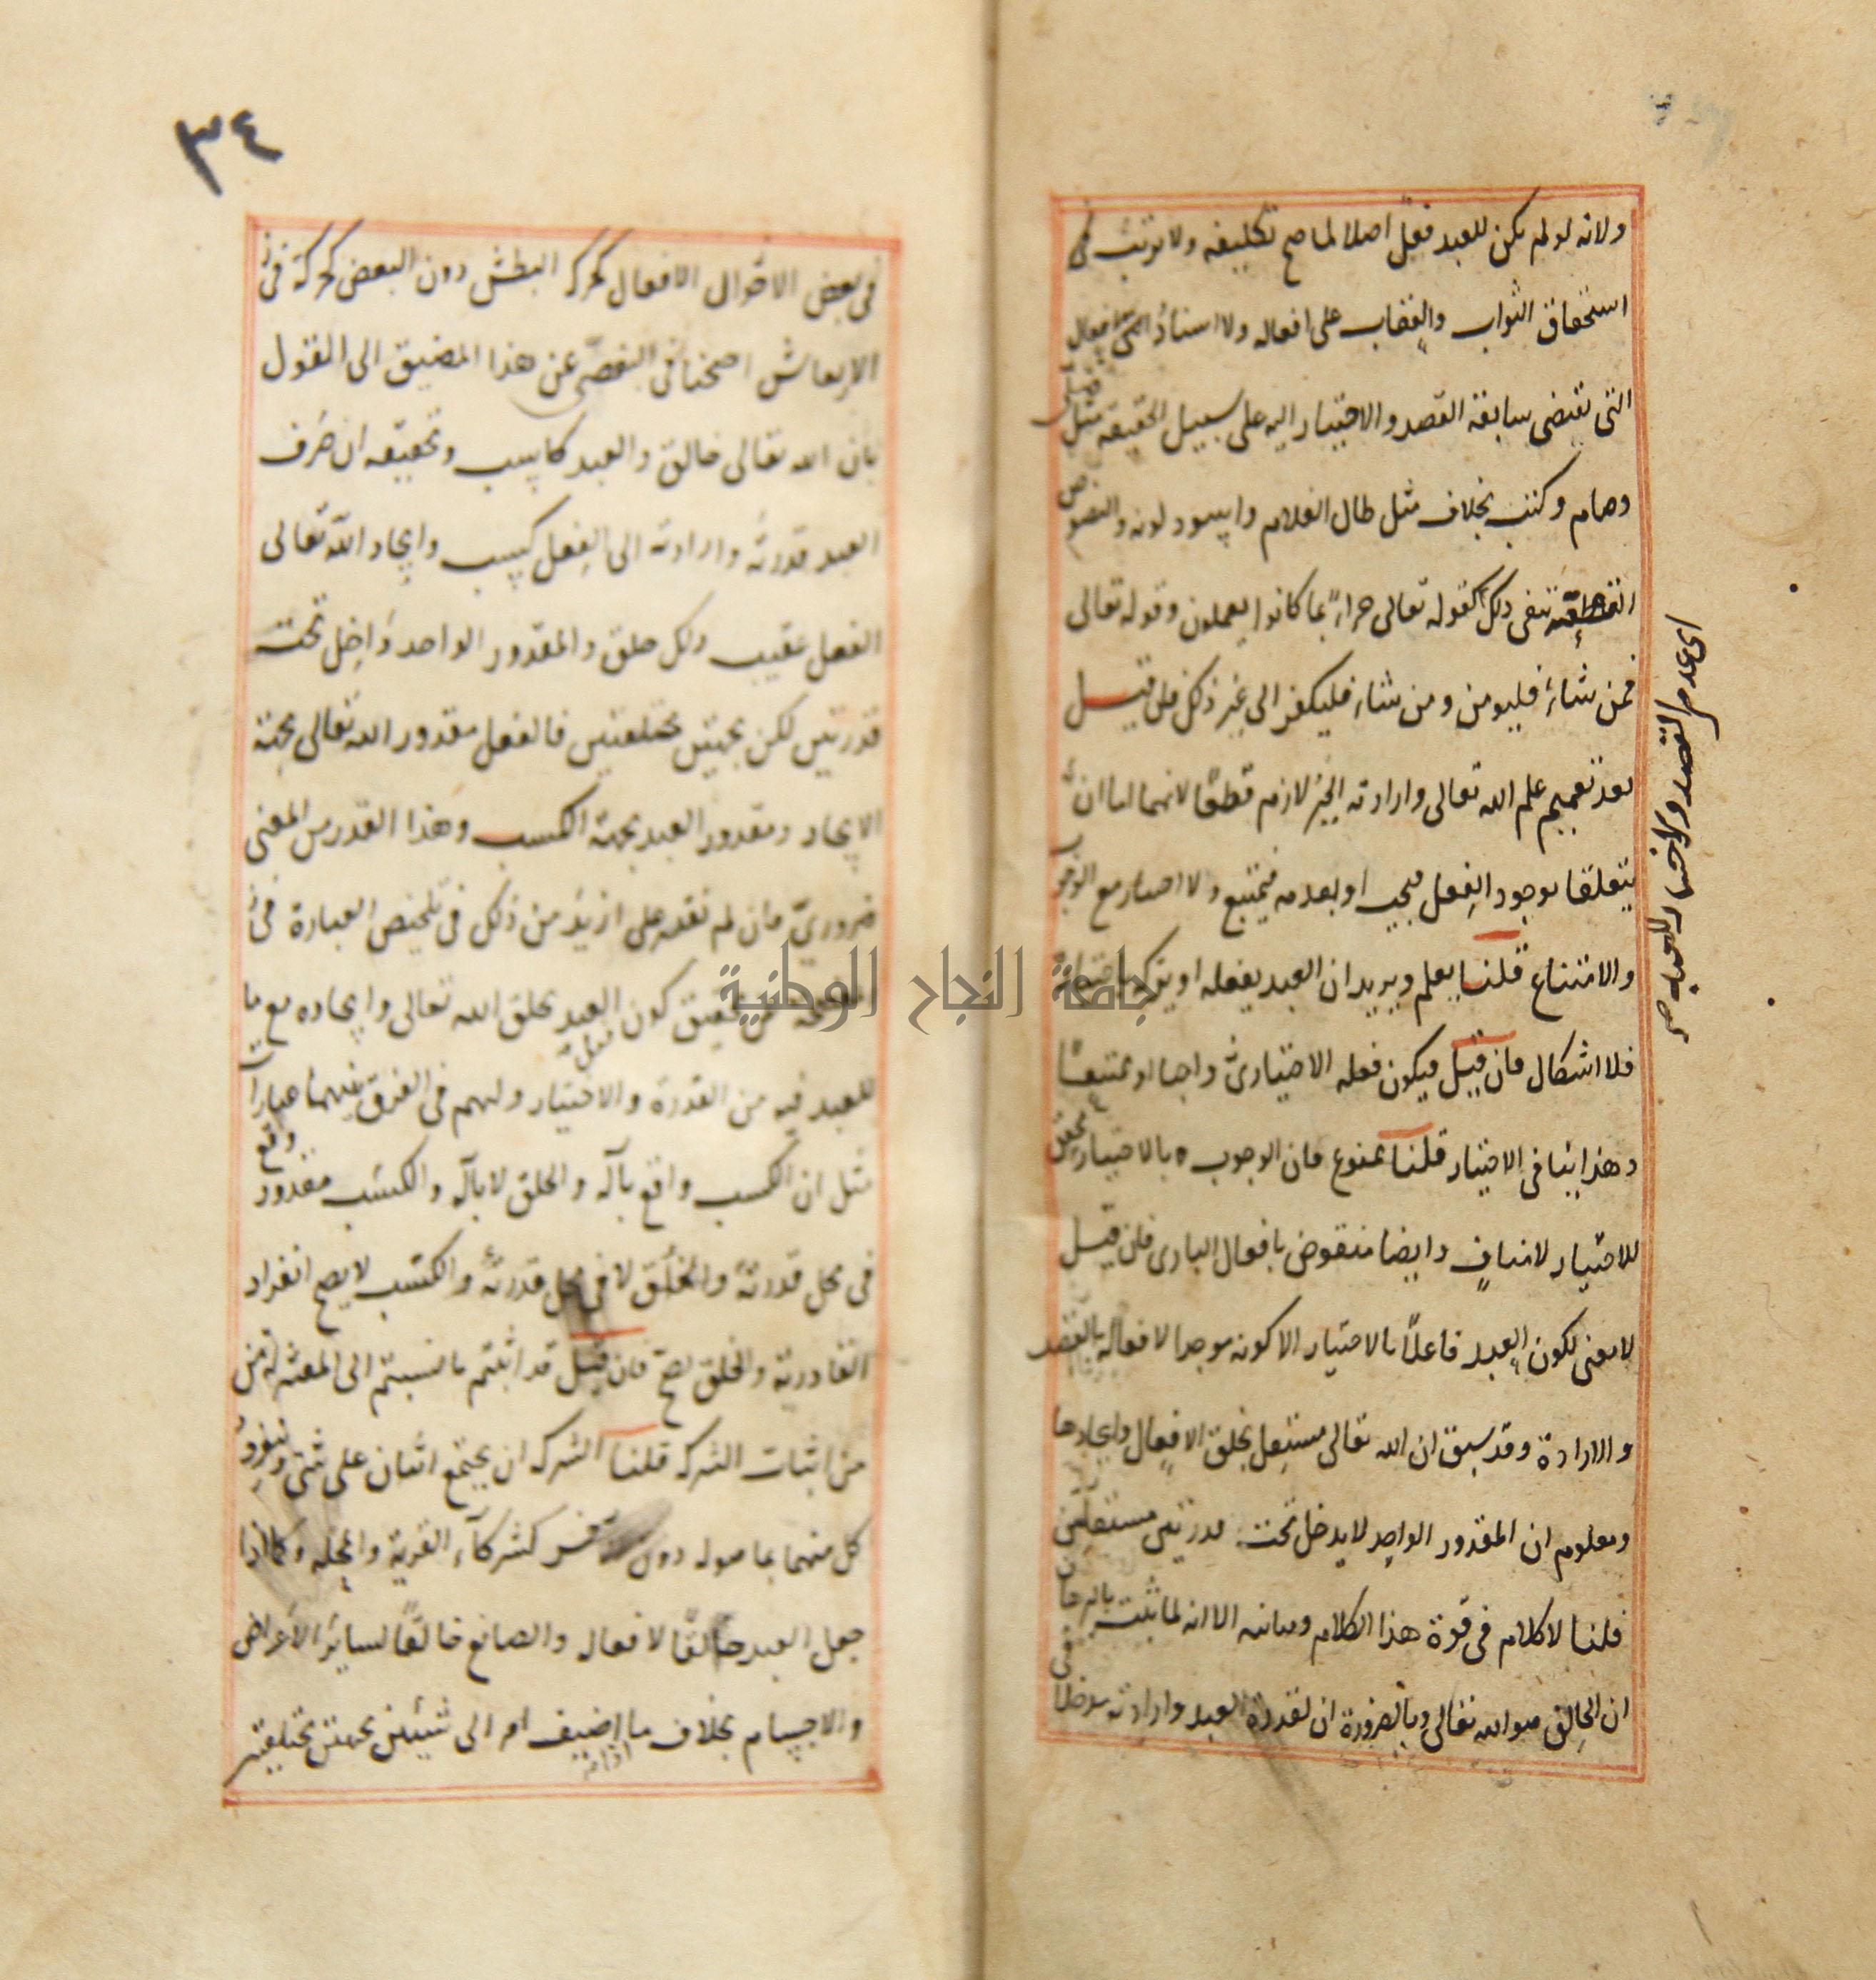 ولانه لو لم يكن للعبد فعل اصلا لما صح تكليفه ولا ترتب
استحقاق الثواب والعقاب على افعاله ولا اسناد افعال
التي يقتضي سابقة القصد والاختيار اليه على سبيل الحقيقة مثل صلى
وصام وكتب بخلاف مثل طال الغلام واسود لونه والنصوص
القطعية تنفي ذلك كقوله تعالى جزاء بما كانوا يعملون وقوله تعالى
فمن شاء فليومن ومن شاء فليكفر الى غير ذلك فان قيل
بعد تعميم علم الله تعالى وارادته الجبر لازم قطعا لانهما اما ان
يتعلقا بوجود الفعل فيجب او بعدمه فيمتنع ولا اختيار مع الوجوب
والامتناع قلنا يعلم ويريد ان العبد يفعله او يتركه باختياره
فلا اشكال فان قيل فيكون فعله الاختياري واجبا او ممتنعا
وهذا ينافي الاختيار قلنا ممنوع فان الوجوب بالاختيار محقق
للاختيار لا مناف وايضا منقوض بافعال الباري فان قيل
لا معنى لكون العبد فاعلا بالاختيار الا كونه موجدا لافعاله بالقصد
والارادة وقد سبق ان الله تعالى مستقل بخلق الافعال وايجادها
ومعلوم ان المقدور الواحد لا يدخل تحت قدرتين مستقلتين
قلنا لا كلام في قوة هذا الكلام ومتانته الا انه لما ثبت بالبرهان
ان الخالق هو الله تعالى وبالضرورة ان لقدرة العبد وارادته مدخلا
٣٤
في بعض الاقوال الافعال كحركة البطش دون البعض كحركة في
الارتعاش احتجنا في التفصي عن هذا المضيق الى القول
بان الله تعالى خالق والعبد كاسب وتحقيقه ان صرف
العبد قدرته وارادته الى الفعل كسب وايجاد الله تعالى
الفعل عقيب ذلك خلق والمقدور الواحد داخل تحت
قدرتين لكن بجهتين مختلفتين فالفعل مقدور الله تعالى بجهة
الايجاد ومقدور العبد بجهة الكسب وهذا القدر من المعنى
ضروري وان لم نقدر على ازيد من ذلك في تلخيص العبارة في
عن تحقيق كون العبد بخلق الله تعالى وايجاده مع ما
للعبد فيه من القدرة والاختيار ولهم في الفرق بينهما عبارات
مثل ان الكسب واقع بآلة والخلق لا بآلة والكسب مقدور وقع
في محل قدرته والخلق لا في محل قدرته والكسب لا يصح انفراد
القادر به والخلق يصح فان قيل قد اثبتم ما نسبتم الى المعتزلة من
من اثبات الشركة قلنا الشركة ان يجتمع اثنان على شيء وينفرد
كل منهما بما هو له دون كشركاء القرية والمحلة وكما اذا
جعل العبد خالقا لافعاله والصانع خالقا لسائر الاعراض
والاجسام بخلاف ما اضيف امر الى شيئين بجهتين مختلفتين
جامعة النجاح الوطنية